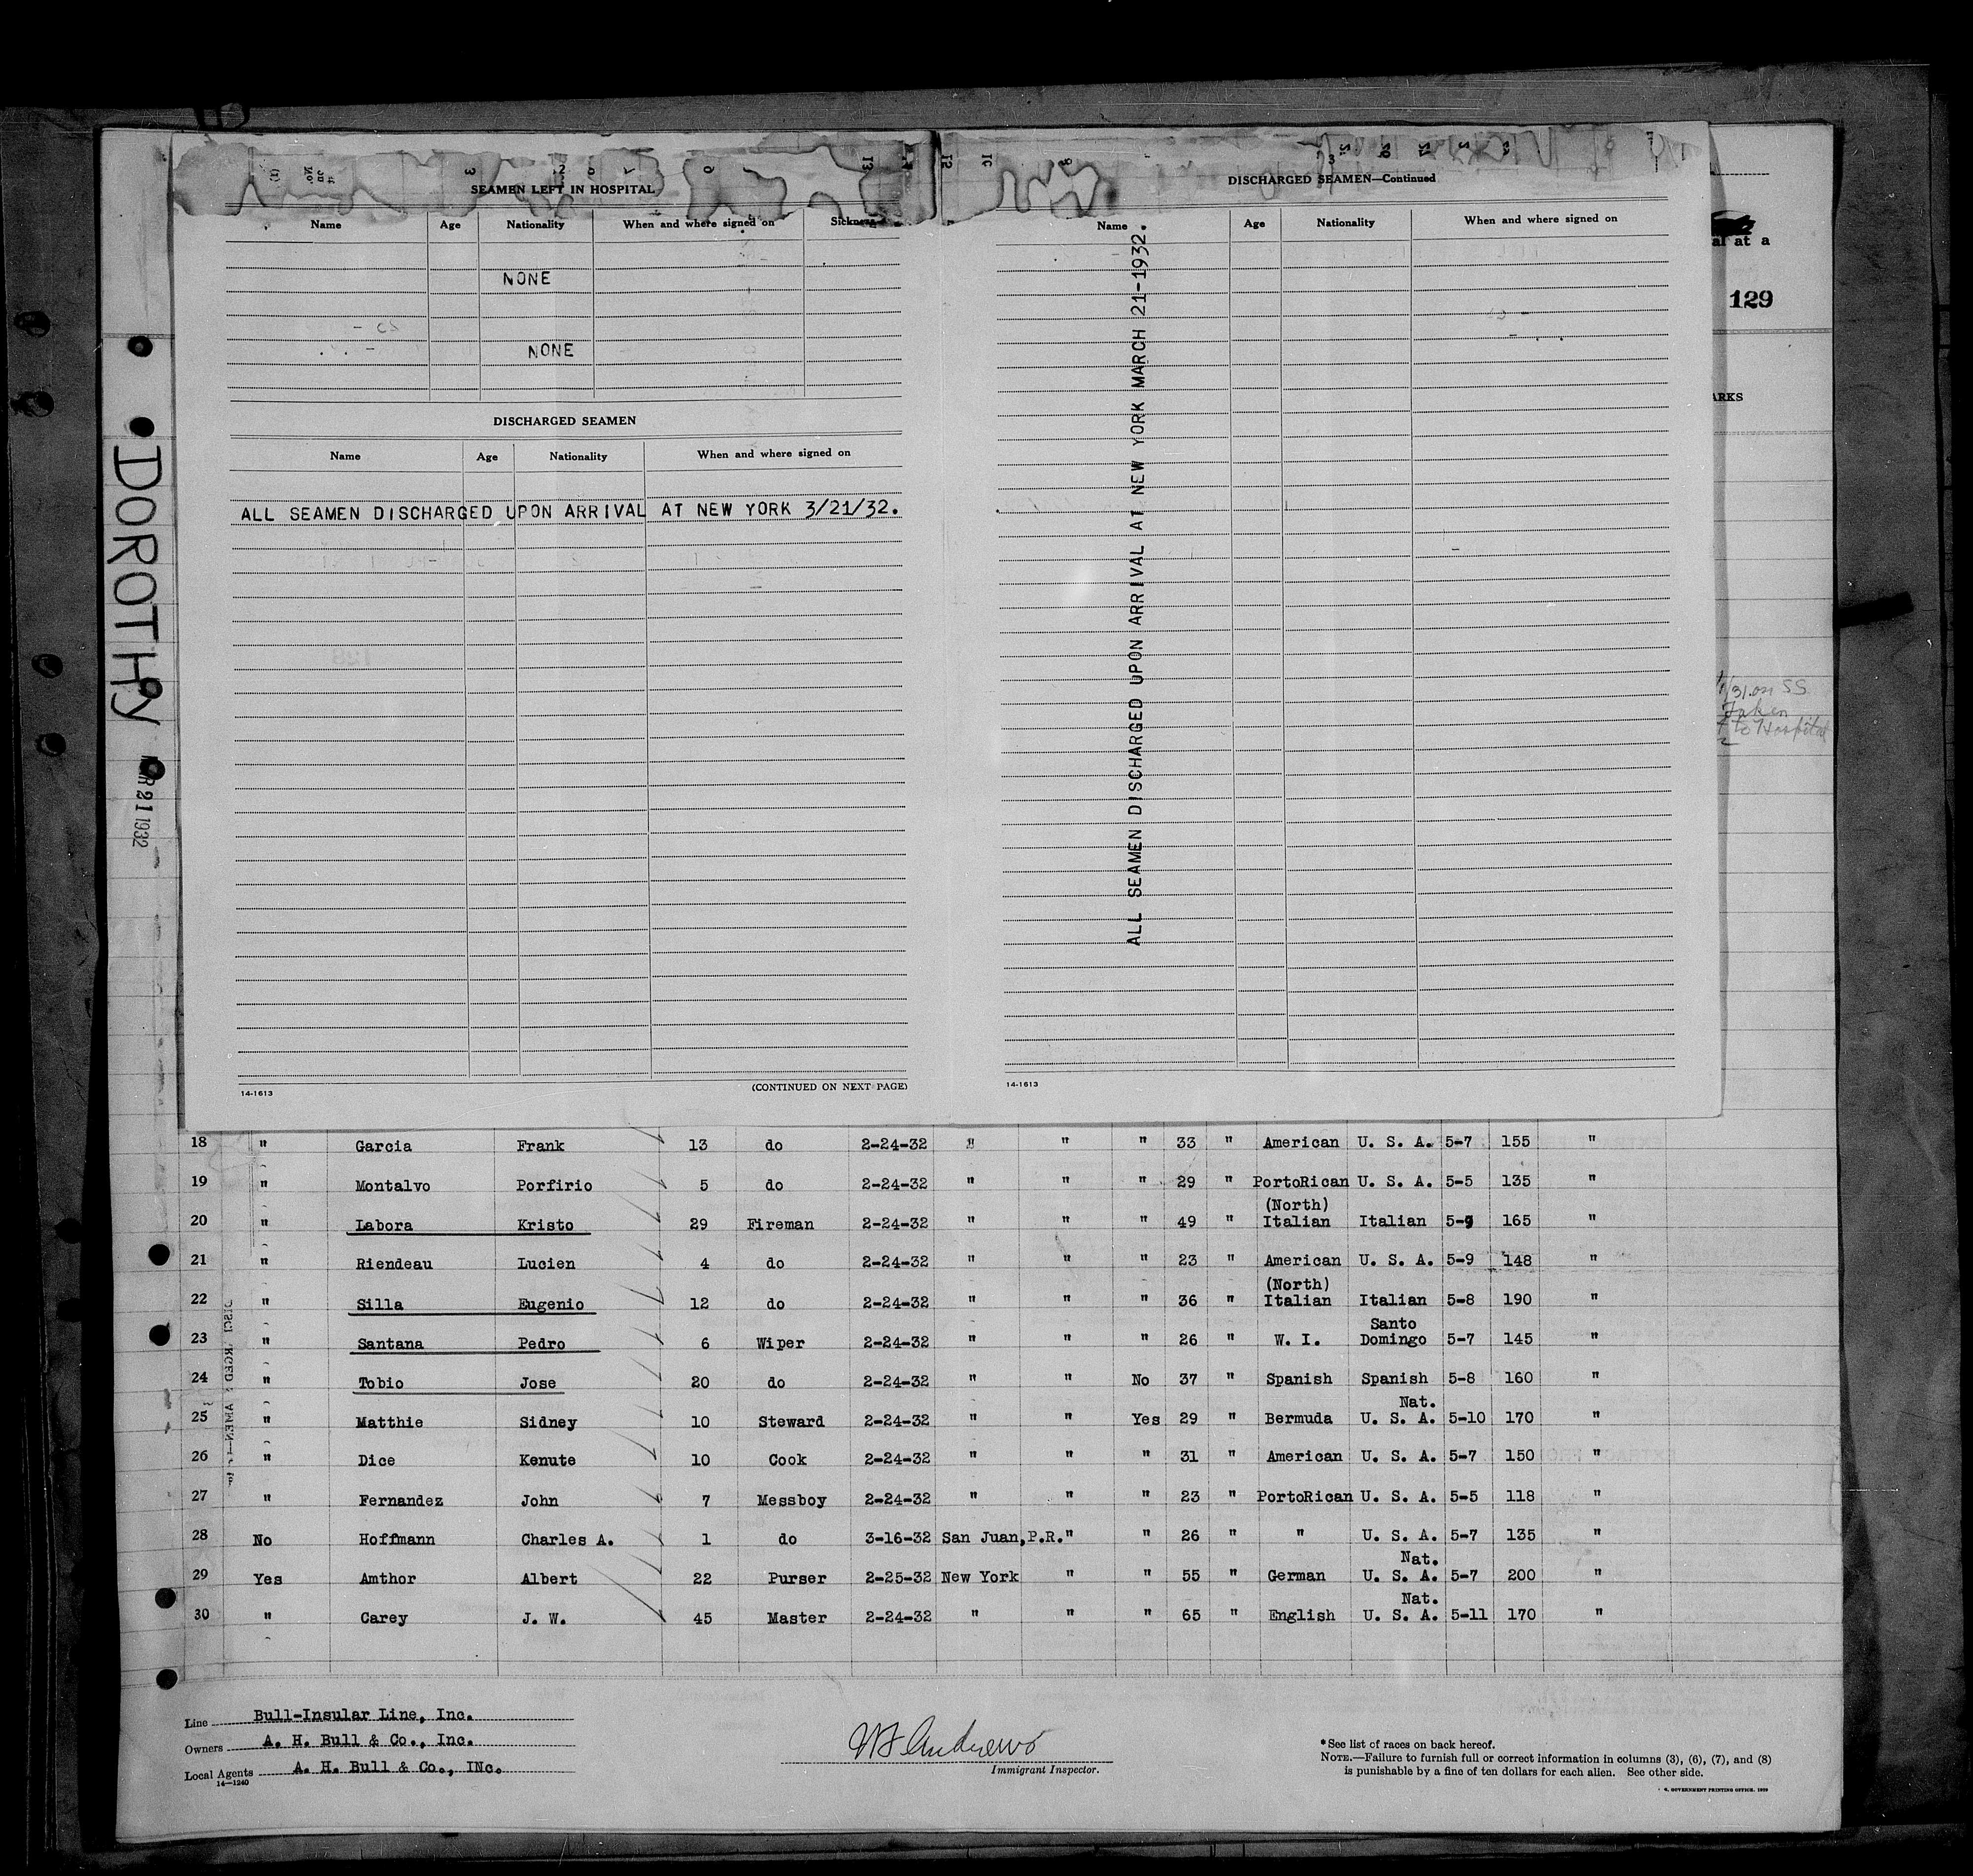 SEAMEN LEFT IN HOSPITAL
Name Age Nationality When and where signed on Sickness
NONE
NONE
DISCHARGED SEAMEN
Name Age Nationality When and where signed on
ALL SEAMEN DISCHARGED UPON ARRIVAL AT NEW YORK 3/21/32.
14-1613 (CONTINUED ON NEXT PAGE)
DISCHARGED SEAMEN—Continued
Name Age Nationality When and where signed on
ALL SEAMEN DISCHARGED UPON ARRIVAL AT NEW YORK MARCH 21-1932.
14-1613
al at a
129
ARKS
/31 on SS
Taken
to Hospital
DOROTHY
MAR 21 1932
18 " Garcia Frank 13 do 2-24-32 " " " 33 " American U. S. A. 5-7 155 "
19 " Montalvo Porfirio 5 do 2-24-32 " " " 29 " PortoRican U. S. A. 5-5 135 "
(North)
20 " Labora Kristo 29 Fireman 2-24-32 " " " 49 " Italian Italian 5-9 165 "
21 " Riendeau Lucien 4 do 2-24-32 " " " 23 " American U. S. A. 5-9 148 "
(North)
22 " Silla Eugenio 12 do 2-24-32 " " " 36 " Italian Italian 5-8 190 "
Santo
23 " Santana Pedro 6 Wiper 2-24-32 " " " 26 " W. I. Domingo 5-7 145 "
24 " Tobio Jose 20 do 2-24-32 " " No 37 " Spanish Spanish 5-8 160 "
Nat.
25 " Matthie Sidney 10 Steward 2-24-32 " " Yes 29 " Bermuda U. S. A. 5-10 170 "
26 " Dice Kenute 10 Cook 2-24-32 " " " 31 " American U. S. A. 5-7 150 "
27 " Fernandez John 7 Messboy 2-24-32 " " " 23 " PortoRican U. S. A. 5-5 118 "
28 No Hoffmann Charles A. 1 do 3-16-32 San Juan, P.R. " " 26 " " U. S. A. 5-7 135 "
Nat.
29 Yes Amthor Albert 22 Purser 2-25-32 New York " " 55 " German U. S. A. 5-7 200 "
Nat.
30 " Carey J. W. 45 Master 2-24-32 " " " 65 " English U. S. A. 5-11 170 "
Line Bull-Insular Line, Inc.
Owners A. H. Bull & Co., Inc.
Local Agents A. H. Bull & Co., INc.
14-1240
Andrews
Immigrant Inspector.
*See list of races on back hereof.
NOTE.—Failure to furnish full or correct information in columns (3), (6), (7), and (8)
is punishable by a fine of ten dollars for each alien. See other side.
GOVERNMENT PRINTING OFFICE